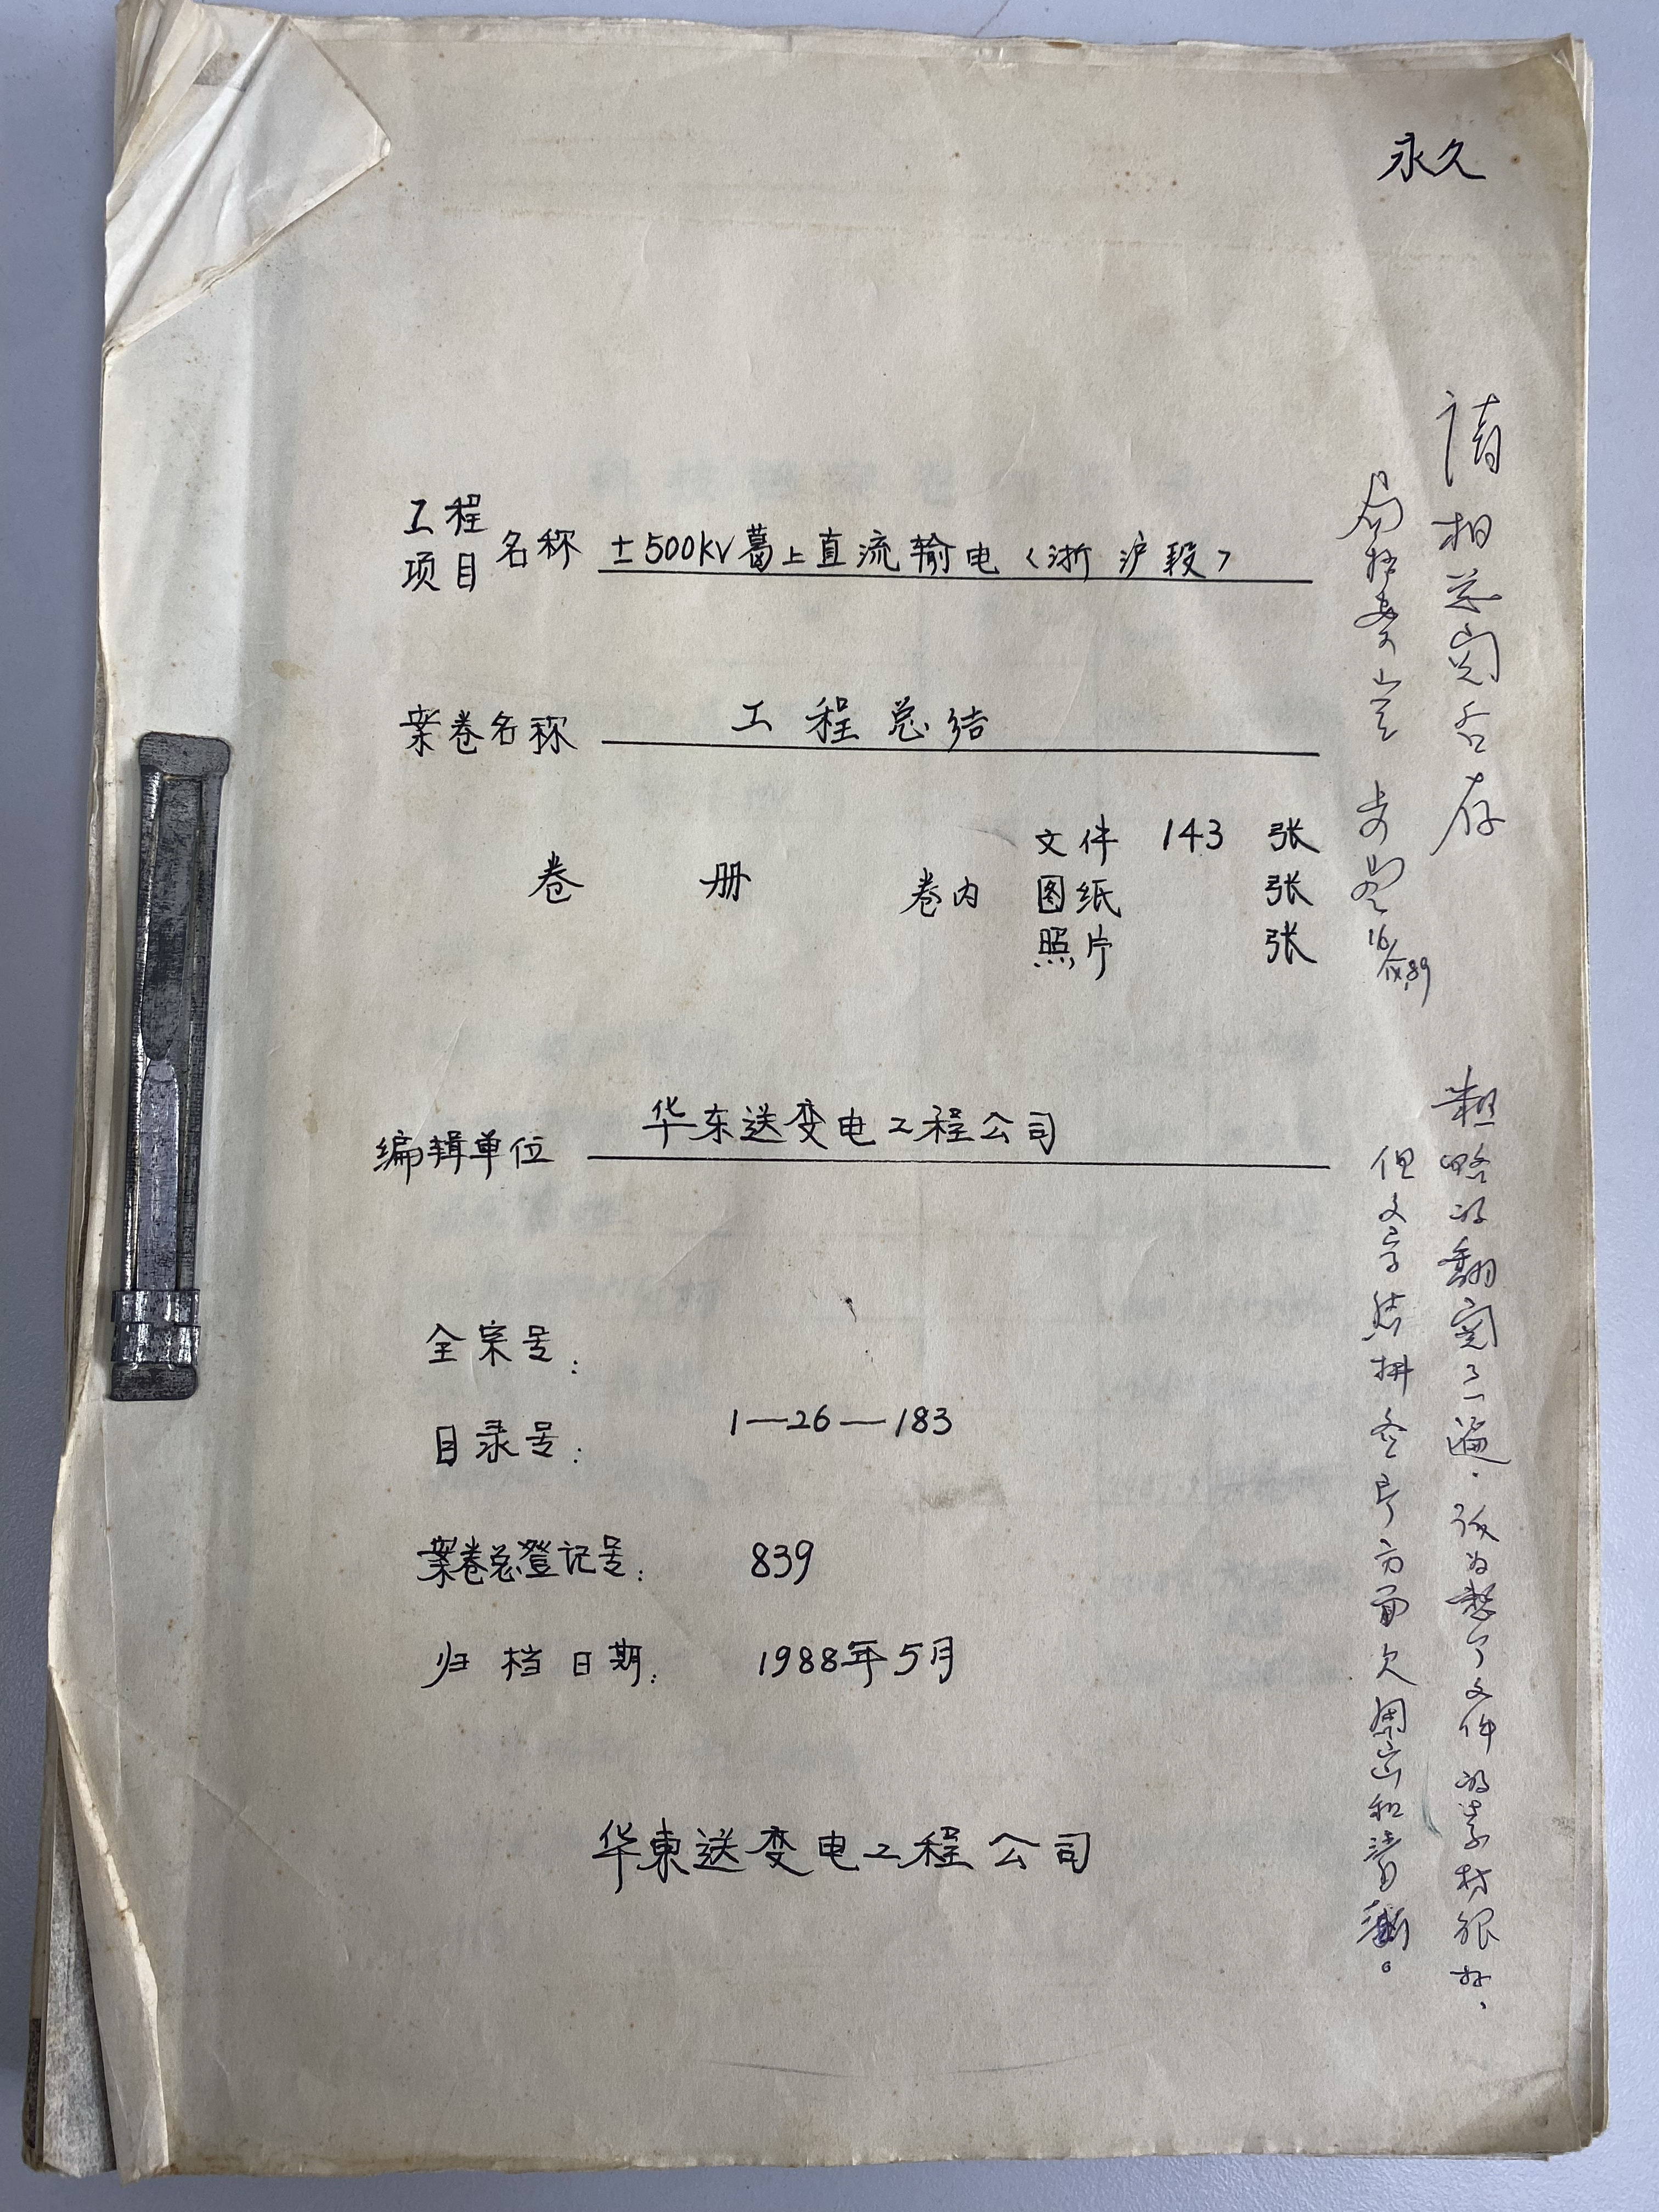 永久
工程
项目 名称 ±500KV葛上直流输电〈浙沪段〉
案卷名称 工程总结
文件 143 张
卷 册 卷内 图纸 张
照片 张
编辑单位 华东送变电工程公司
全宗号:
目录号: 1—26—183
案卷总登记号: 839
归档日期: 1988年5月
华東送变电工程公司
请相总阅后存
粗略的翻阅了一遍.认为整个文件的素材很好、
但文字结构念头方面欠